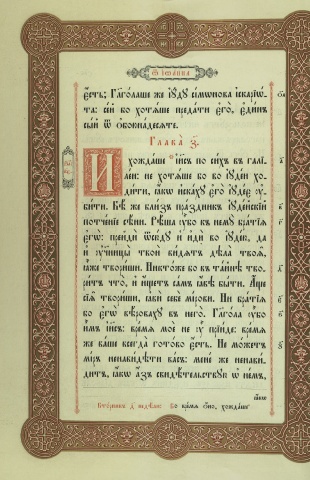 Ѿ ІѠАННА
є҆́сть; Глаго́лаше же і҆ꙋ́дꙋ сі́мѡнова і҆скарїѡ́-
та: се́й бо хотѧ́ше преда́ти є҆го̀, є҆ди́нъ
сы́й ѿ ѻ҆боюна́десѧте.
Глава̀ з҃.
И҆ хожда́ше і҆и҃съ по си́хъ въ галї-
ле́и: не хотѧ́ше бо во і҆ꙋде́и хо-
ди́ти, ꙗ҆́кѡ и҆ска́хꙋ є҆го̀ і҆ꙋде́є ᲂу҆-
би́ти. Бѣ́ же бли́з̾ пра́здникъ і҆ꙋде́йскїй
потче́нїе сѣ́ни. Рѣ́ша ᲂу҆̀бо къ немꙋ̀ бра́тїѧ
є҆гѡ̀: прейдѝ ѿсю́дꙋ и҆ и҆дѝ во і҆ꙋде́ю, да
и҆ ᲂу҆ч҃ницы̀ твоѝ ви́дѧтъ дѣла̀ твоѧ̑,
ꙗ҆̀же твори́ши. Никто́же бо въ та́йнѣ тво-
ри́тъ что̀, и҆ и҆́щетъ са́мъ ꙗ҆́вѣ бы́ти. А҆́ще
сїѧ̑ твори́ши, ꙗ҆вѝ себѐ мі́рови. Ни бра́тїѧ
бо є҆гѡ̀ вѣ́ровахꙋ въ него̀. Глаго́ла ᲂу҆̀бо
и҆̀мъ і҆и҃съ: вре́мѧ моѐ не ᲂу҆̀ прїи́де: вре́мѧ
же ва́ше всегда̀ гото́во є҆́сть. Не мо́жетъ
мі́ръ ненави́дѣти ва́съ: менє́ же ненави́-
дитъ, ꙗ҆́кѡ а҆́зъ свидѣ́тельствꙋю ѡ҆ не́мъ,
ꙗ҆́кѡ
Вто́рникъ д҃ недѣ́ли: Во вре́мѧ ѻ҆́но, хожда́ше